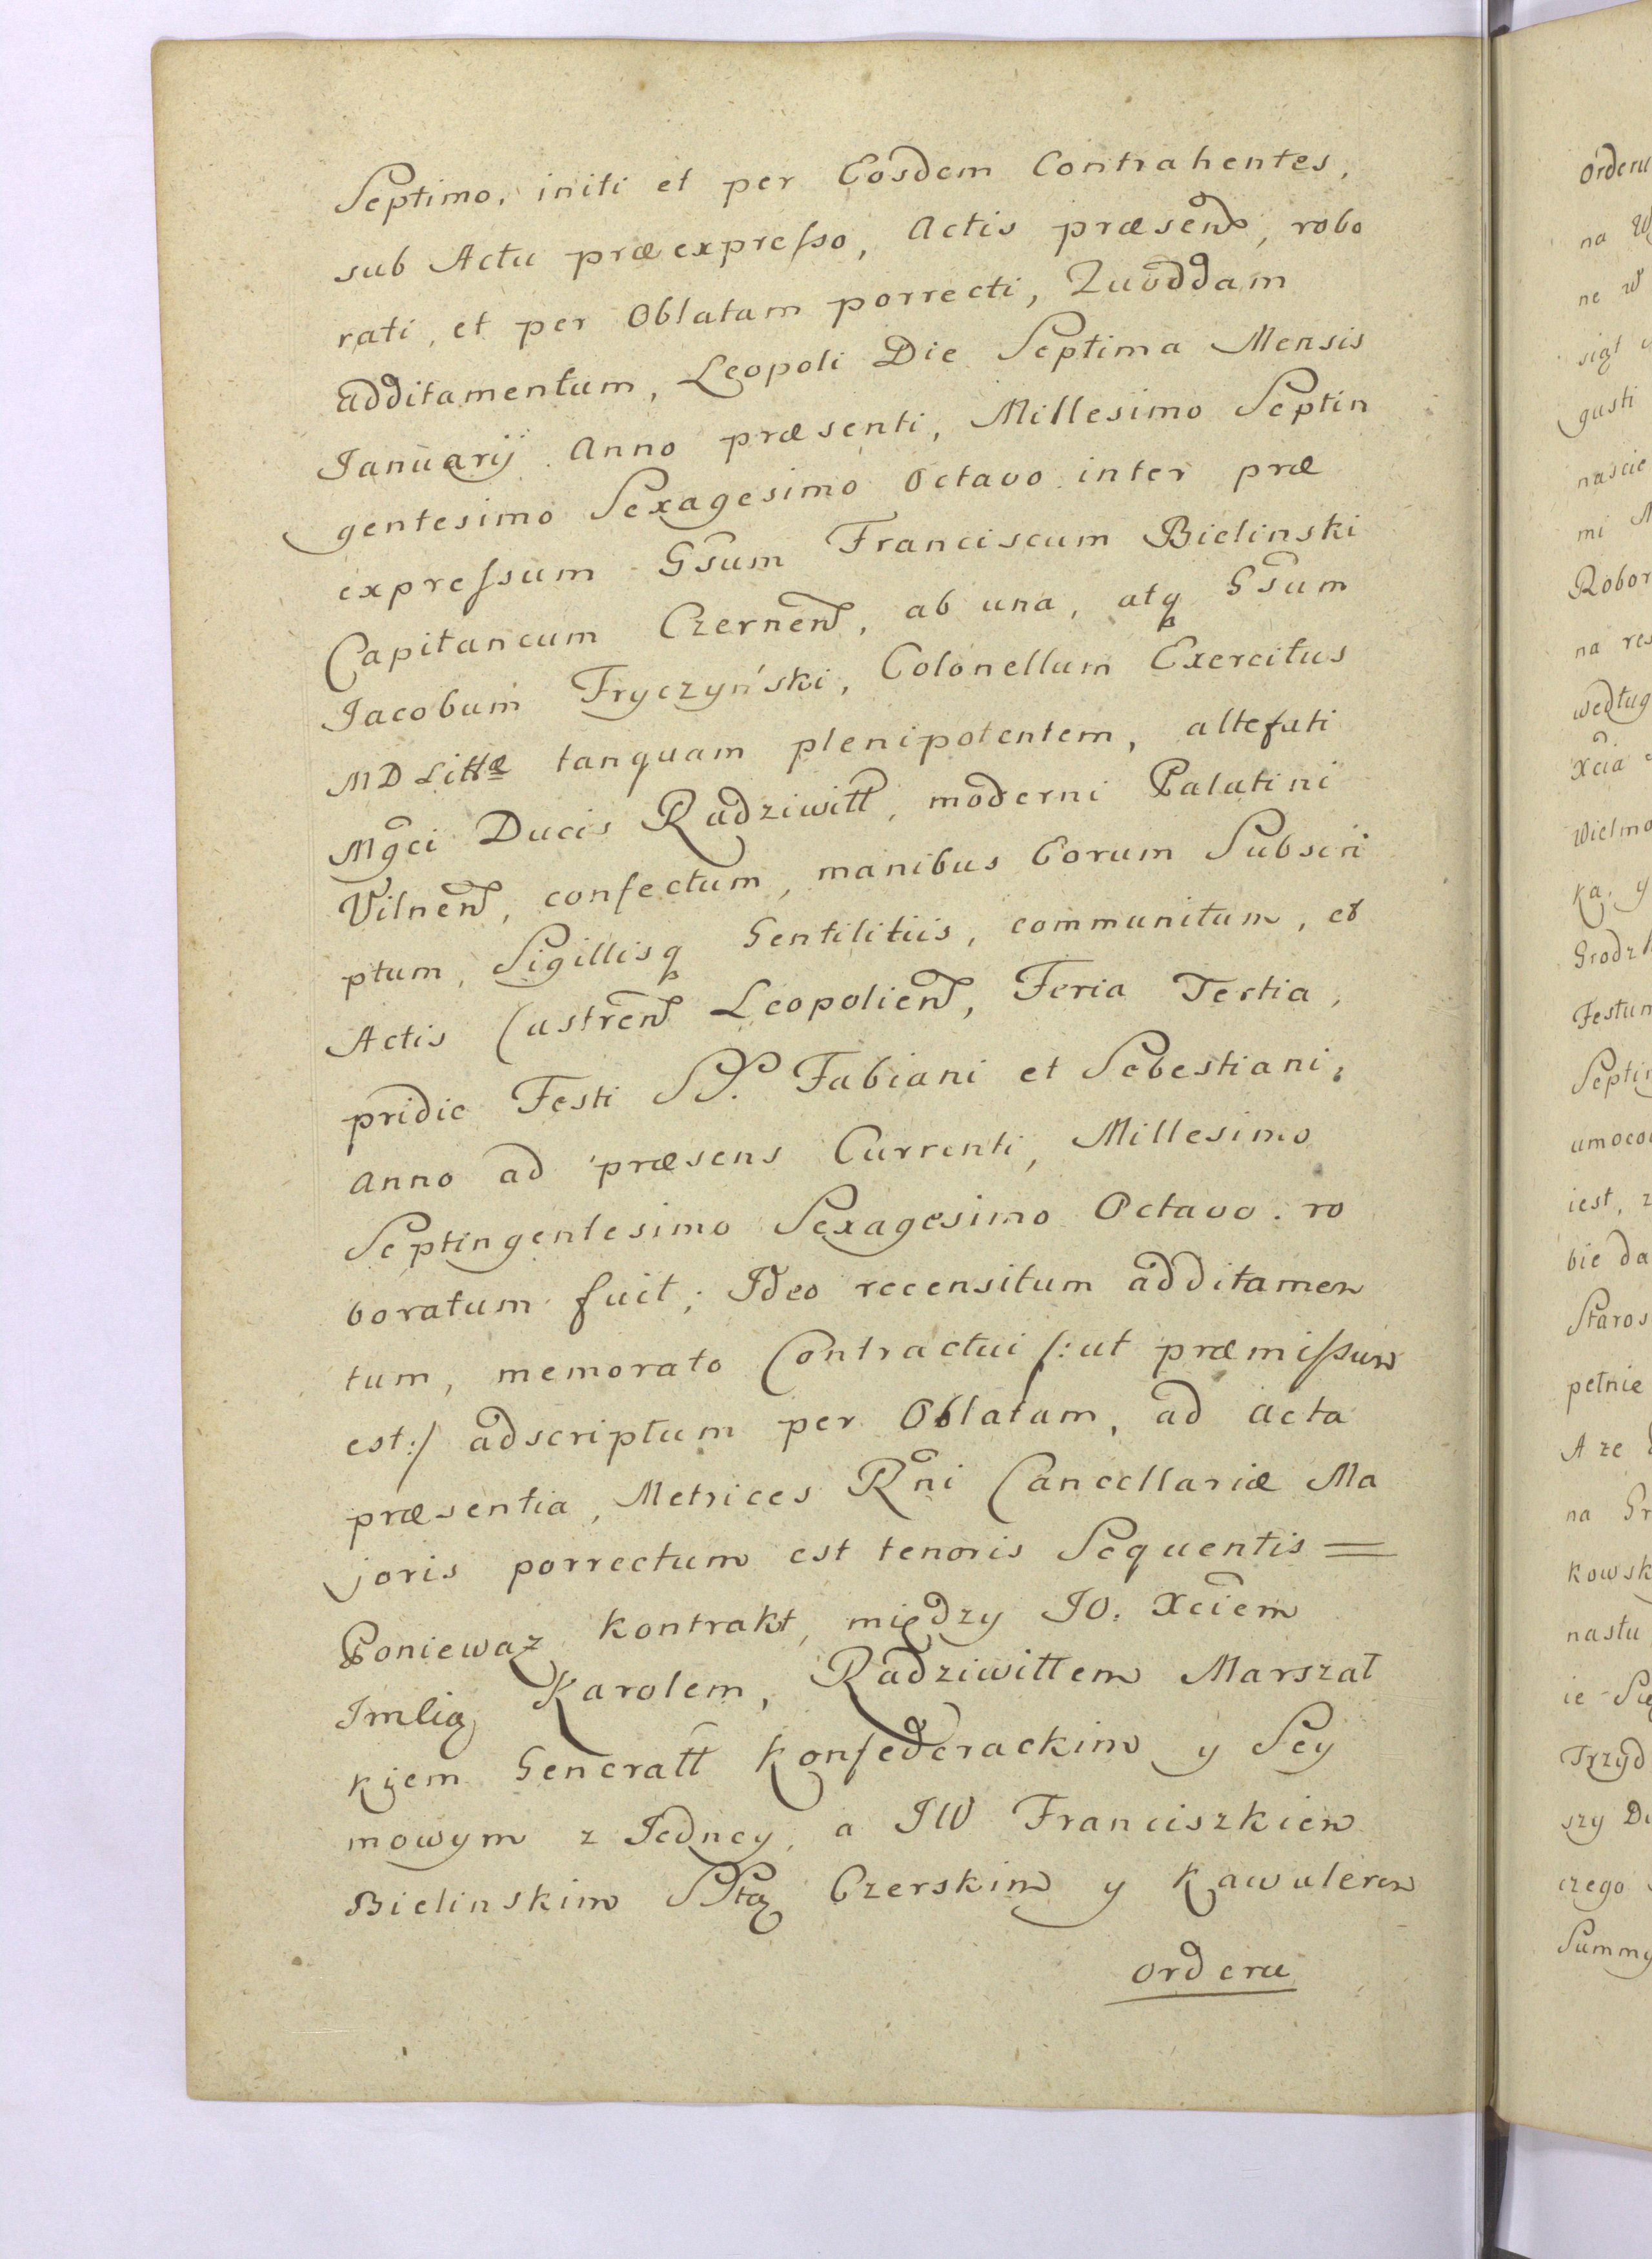 Septimo, initi et per Eosdem Contrahentes,
sub Actu præexpresso, Actis præsen, robo
rati, et per Oblatam porrecti, Quoddam
additamentum, Leopoli Die Septima Mensis
Januarij Anno præsenti, Millesimo Septin
gentesimo Sexagesimo Octavo inter præ
expressum Gsum Franciscum Bielinski
Capitaneum Czernen, ab una, atq Gsum
Jacobum Fryczyński, Colonellum Exercitus
MD Littæ tanquam plenipotentem, altefati
Mgci Ducis Radziwiłł, moderni Palatini
Vilnen, confectum, manibus Eorum Subscri
ptum, Sigillisq Gentilitiis, communitum, et
Actis Castren Leopolien, Feria Tertia,
pridie Festi SS. Fabiani et Sebestiani,
Anno ad præsens Currenti, Millesimo
Septingentesimo Sexagesimo Octavo. ro
boratum fuit; Ideo recensitum additamen
tum, memorato Contractui /:ut præmissum
est:/ adscriptum per Oblatam, ad acta
præsentia, Metrices Rni Cancellariæ Ma
joris porrectum est tenoris Sequentis =
Poniewaz Kontrakt, między JO: Xciem
Imcią Karolem, Radziwiłłem Marszał
kiem Generall Konfederackim y Sey
mowym z Jedney, a JW Franciszkiem
Bielinskim Sttą Czerskim y Kawalerem
orderu